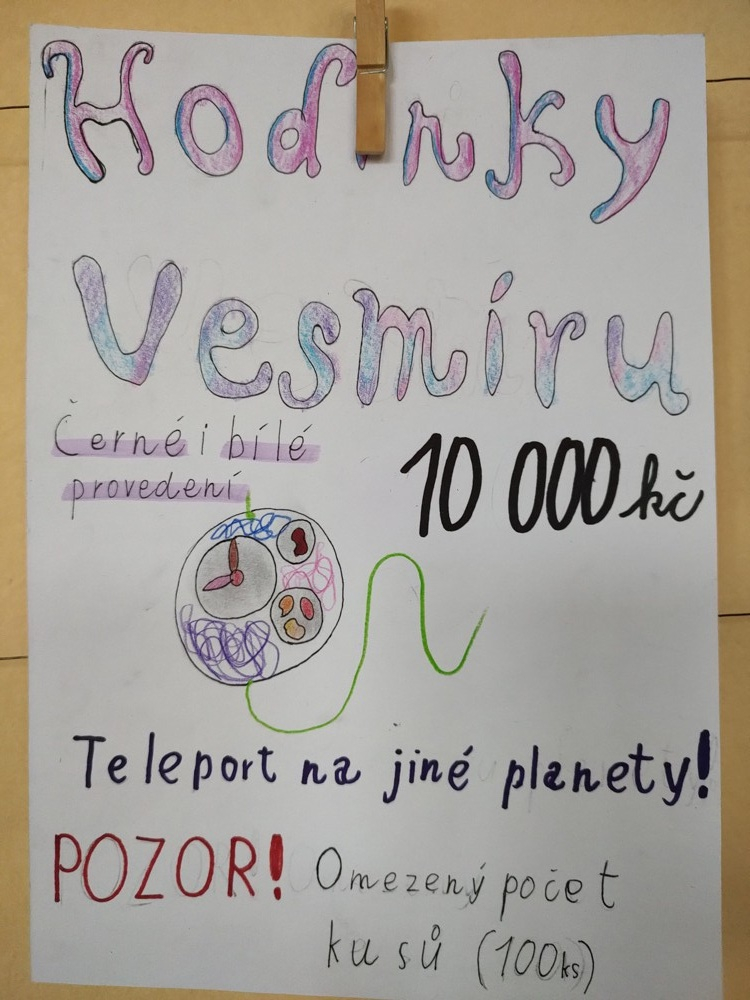 Hodinky
Vesmíru
Černé i bílé
provedení
10 000 kč
Teleport na jiné planety!
POZOR! Omezený počet
kusů (100ks)